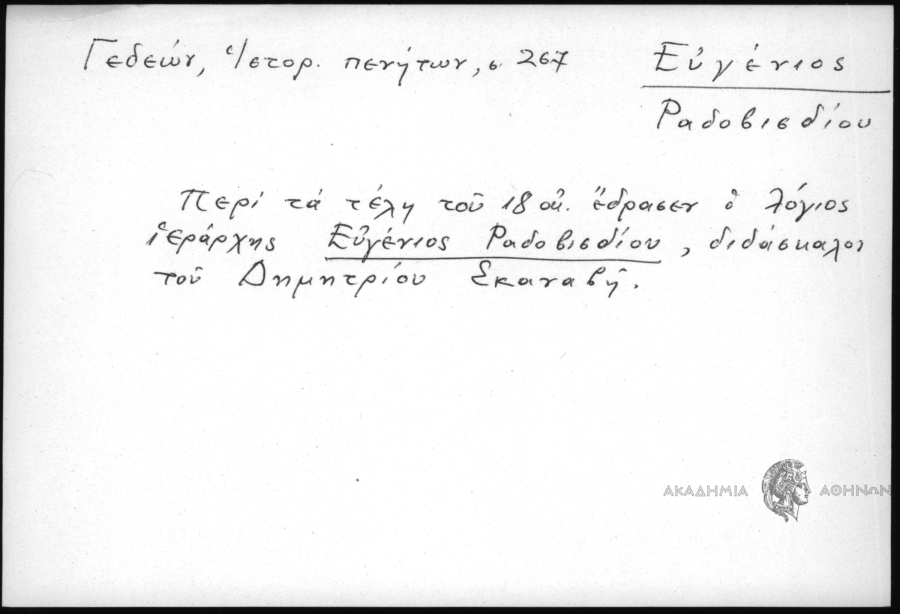 Γεδεών, Ἱστορ. πενήτων, σ. 267
Εὐγένιος
Ραδοβισδίου
Περί τά τέλη τοῦ 18 αἰ. ἔδρασεν ὁ λόγιος
ἱεράρχης Εὐγένιος Ραδοβισδίου, διδάσκαλος
τοῦ Δημητρίου Σκαναβῆ.
ΑΚΑΔΗΜΙΑ ΑΘΗΝΩΝ